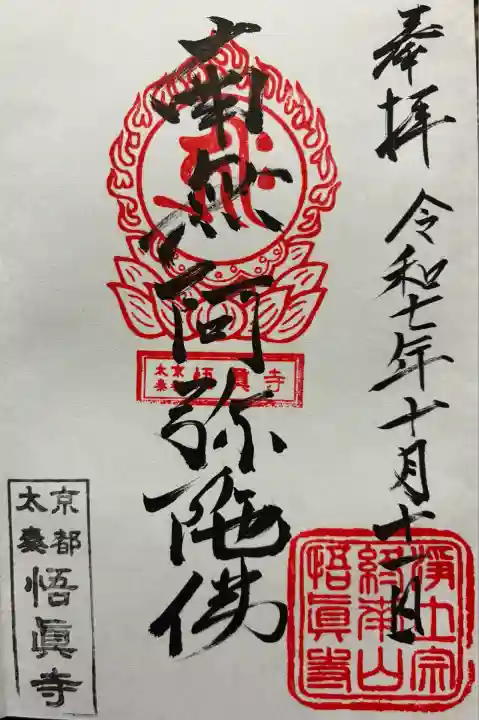 奉拝
令和七年十月十一日
南無阿弥陀佛
京都
太秦
悟眞寺
浄土宗
総本山
悟眞寺
京都
太秦
悟眞寺